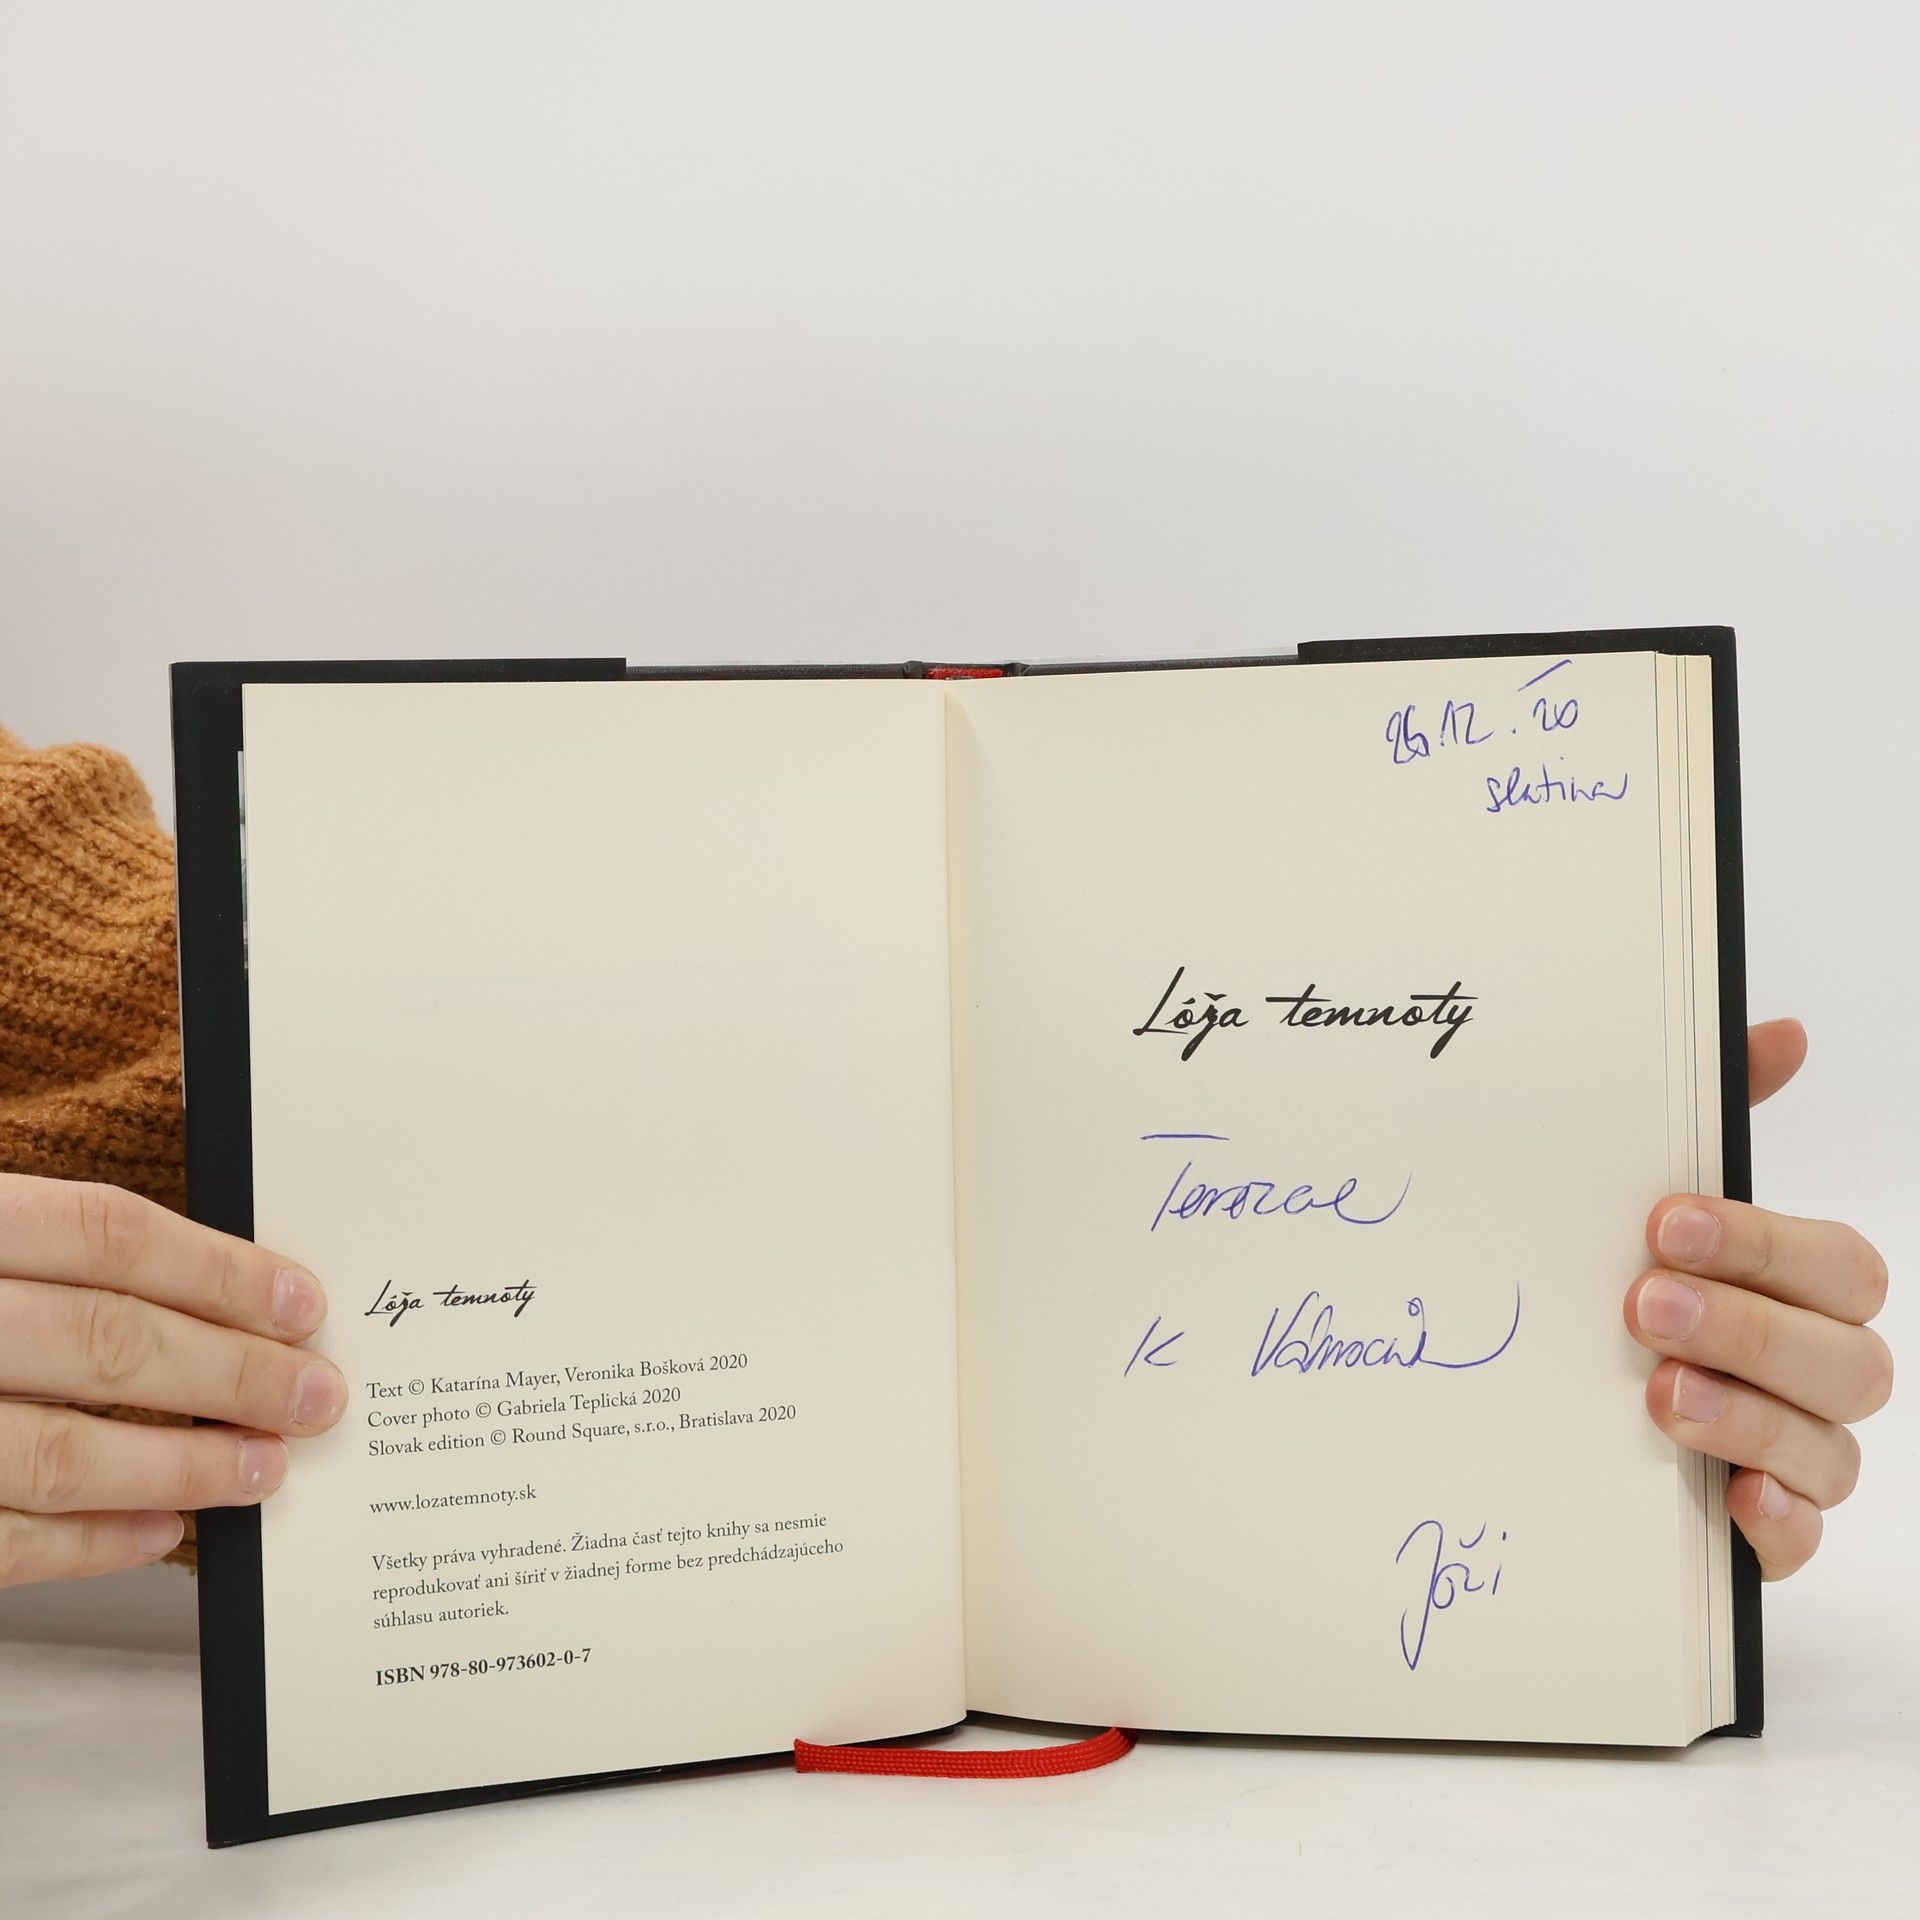 Lóža temnoty
Text © Katarína Mayer, Veronika Bošková 2020
Cover photo © Gabriela Teplická 2020
Slovak edition © Round Square, s.r.o., Bratislava 2020
www.lozatemnoty.sk
Všetky práva vyhradené. Žiadna časť tejto knihy sa nesmie
reprodukovať ani šíriť v žiadnej forme bez predchádzajúceho
súhlasu autoriek.
ISBN 978-80-973602-0-7
26.12.20
slatina
Lóža temnoty
K